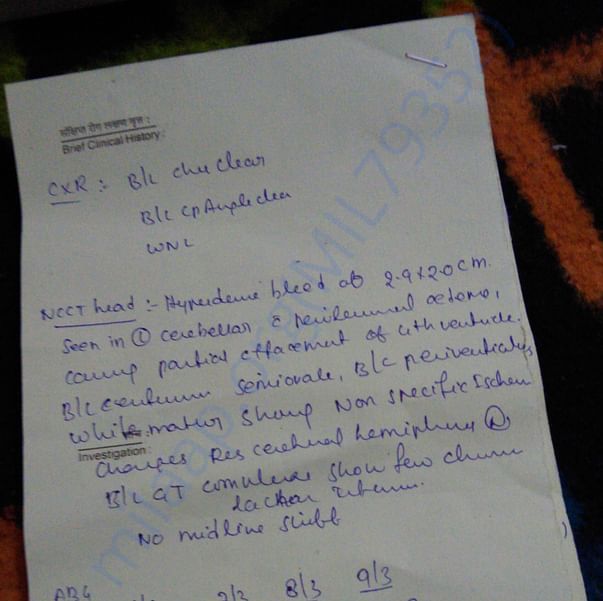 संक्षिप्त रोग लक्षण वृत्त :
Brief Clinical History :
CXR :- B/L chu clear
B/L CP Angle clea
WNL
NCCT head :- Hyperdense bleed of 2.9 x 2.0 cm.
seen in Ⓛ cerebellar c perilesional oedema,
causing partial effacement of 4th ventricle.
B/L centrum semiovale, B/L periventricular
white matter showg Non specific Ischem
Investigation :
changes Res cerebral hemisphere Ⓝ
B/L GT complex show few chronic
lacunar
No midline shift
ABG
9/3 8/3 9/3
milaap.org/MIL79352